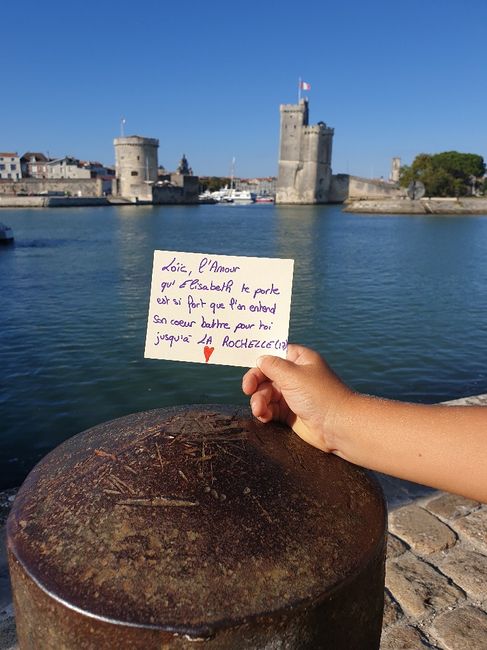 Loïc, l'Amour
qu'Elisabeth te porte
est si fort que l'on entend
son coeur battre pour toi
jusqu'à LA ROCHELLE (17)